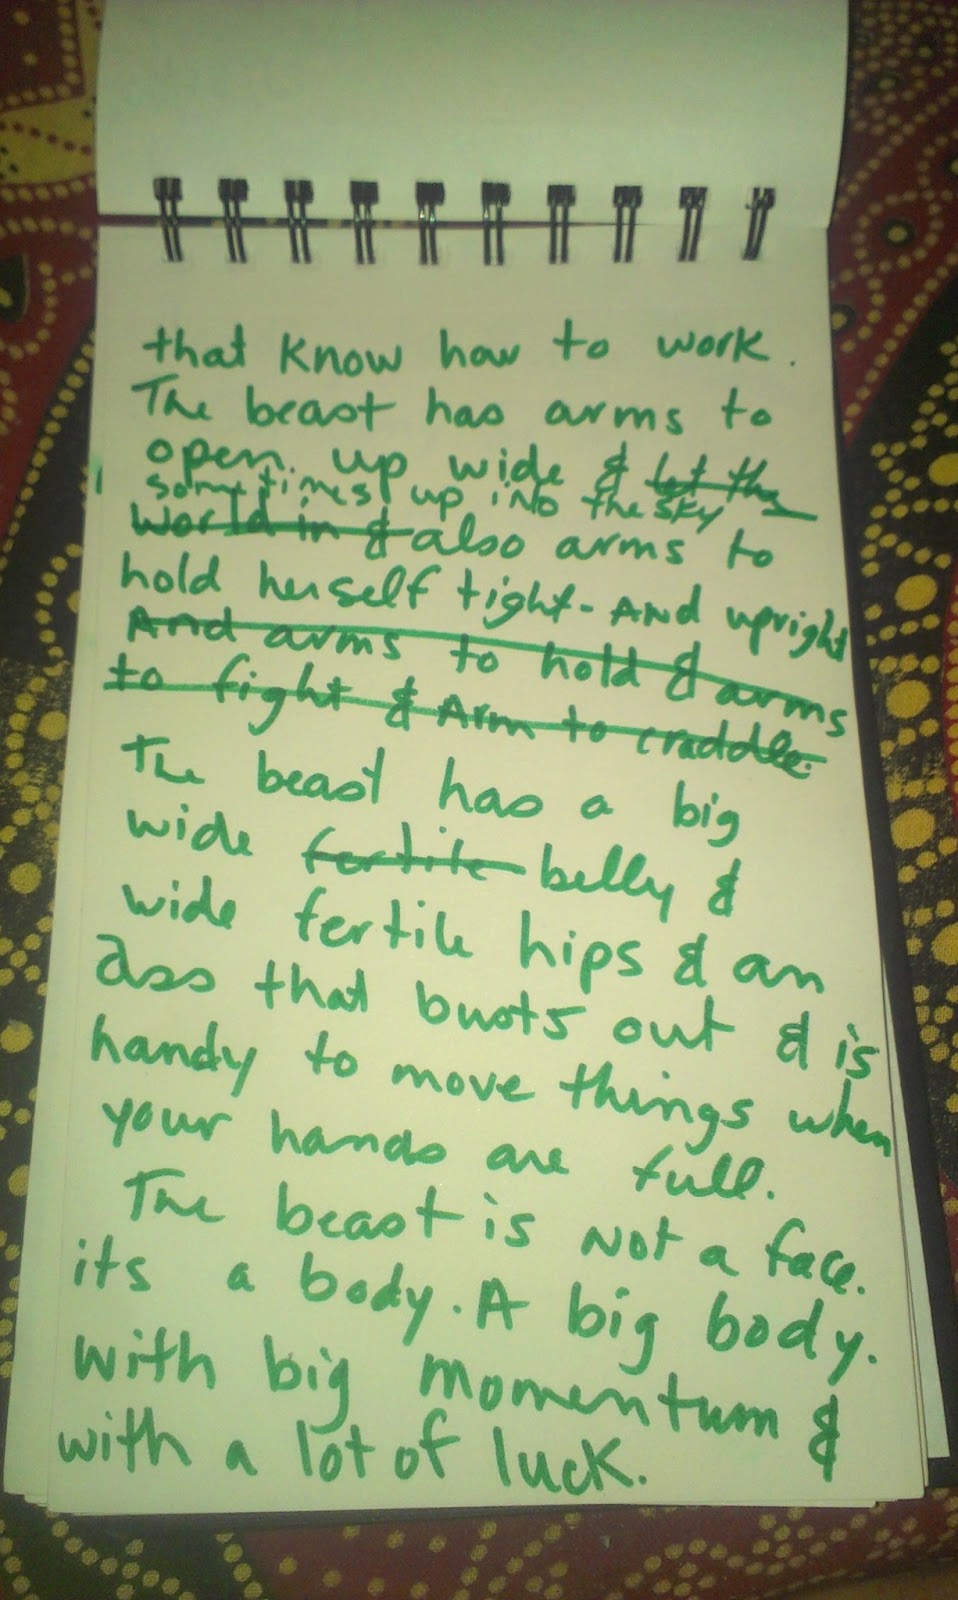 that know how to work.
The beast has arms to
open up wide & let the
sometimes up into the sky
world in & also arms to
hold herself tight - AND upright
And arms to hold & arms
to fight & Arm to craddle.
The beast has a big
wide fertile belly &
wide fertile hips & an
ass that busts out & is
handy to move things when
your hands are full.
The beast is not a face.
its a body. A big body.
with big momentum &
with a lot of luck.